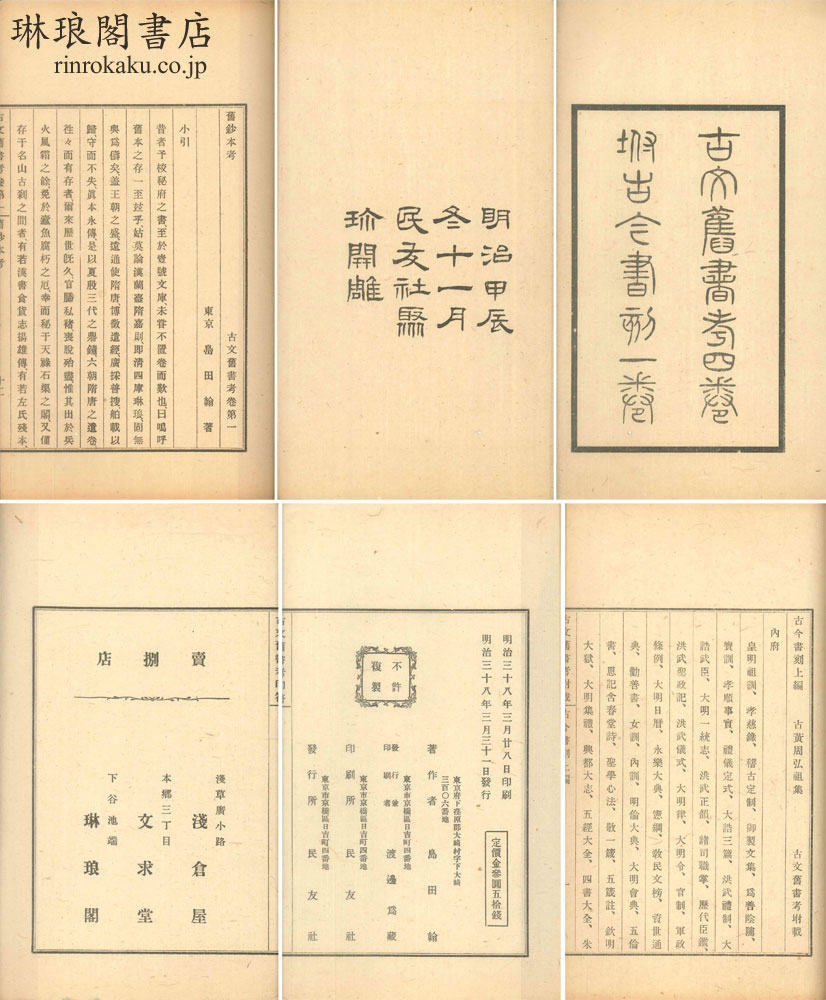 琳琅閣書店
rinrokaku.co.jp
古文舊書考四卷
坿古今書刻一卷
明治甲辰
冬十一月
民友社聚
珍開雕
古文舊書考卷第一
舊鈔本考
東京 島田翰 著
小引
昔者予校秘府之書、至於壹號文庫、未嘗不置卷而歎也、曰嗚呼
舊本之存、一至玆乎、姑莫論漢蘭臺隋嘉則、即清四庫琳琅、固無
與爲儔矣、蓋王朝之盛、遠通使隋唐、博徵遺經、廣採普搜、舶載以
歸、守而不失、眞本永傳、是以夏殷三代之彝鐘、六朝隋唐之遺卷、
往々而有存者、爾來歷世既久、官賸私褚、喪脫殆盡、惟其出於兵
火風霜之餘、免於蠹魚腐朽之厄、幸而秘于天祿石渠之閣、又僅
存于名山古刹之間者、有若漢書食貨志揚雄傳、有若左氏殘本、
古文舊書考卷第一 舊鈔本考
古今書刻上編 古黃周弘祖集 古文舊書考坿載
內府
皇明祖訓、孝慈錄、稽古定制、御製文集、爲善陰隲、
寶訓、孝順事實、禮儀定式、大誥三篇、洪武禮制、大
誥武臣、大明一統志、洪武正韻、諸司職掌、歷代臣鑑、
洪武聖政記、洪武儀式、大明律、大明令、官制、軍政
條例、大明日曆、永樂大典、憲綱、敎民文榜、資世通
典、勸善書、女訓、內訓、明倫大典、大明會典、五倫
書、恩記含春堂詩、聖學心法、敬一箴、五箴註、欽明
大獄、大明集禮、興都大志、五經大全、四書大全、朱
古文舊書考坿載 古今書刻上編 一
明治三十八年三月廿八日印刷
明治三十八年三月三十一日發行
定價金參圓五拾錢
不許複製
東京府下荏原郡大崎村字下大崎
三百〇六番地
著作者 島田翰
東京市京橋區日吉町四番地
發行兼
印刷者 渡邊爲藏
東京市京橋區日吉町四番地
印刷所 民友社
東京市京橋區日吉町四番地
發行所 民友社
賣捌店
淺草廣小路
淺倉屋
本鄉三丁目
文求堂
下谷池端
琳琅閣